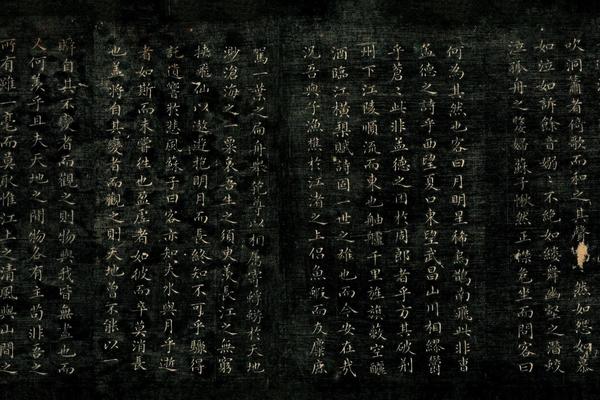 吹洞簫者倚歌而和之其聲然如怨如慕
如泣如訴餘音嫋〻不絕如縷舞幽壑之潛蛟
泣孤舟之嫠婦蘇子愀然正襟危坐而問客曰
何為其然也客曰月明星稀烏鵲南飛此非曹
孟德之詩乎西望夏口東望武昌山川相繆鬱
乎蒼〻此非孟德之困於周郎者乎方其破荆
州下江陵順流而東也舳艫千里旌旗蔽空釃
酒臨江橫槊賦詩固一世之雄也而今安在哉
況吾與子漁樵於江渚之上侶魚鰕而友麋鹿
駕一葉之扁舟舉匏尊以相屬寄蜉蝣於天地
渺滄海之一粟哀吾生之須臾羨長江之無窮
挾飛仙以遨遊抱明月而長終知不可乎驟得
託遺響於悲風蘇子曰客亦知夫水與月乎逝
者如斯而未嘗往也盈虛者如彼而卒莫消長
也蓋將自其變者而觀之則天地曾不能以一
瞬自其不變者而觀之則物與我皆無盡也而
又何羨乎且夫天地之間物各有主苟非吾之
所有雖一毫而莫取惟江上之清風與山間之